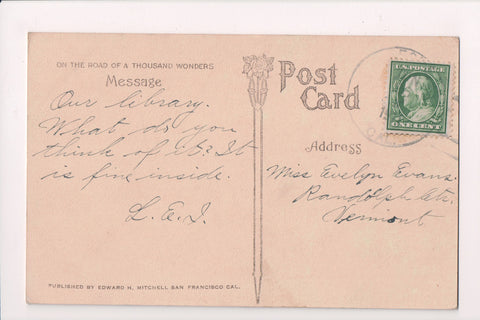 ON THE ROAD OF A THOUSAND WONDERS
Message
Our library.
What do you
think of it? It
is fine inside.
L. E. I.
PUBLISHED BY EDWARD H. MITCHELL SAN FRANCISCO CAL.
Post
Card
Address
U.S. POSTAGE
ONE CENT
Miss Evelyn Evans.
Randolph Ctr.
Vermont